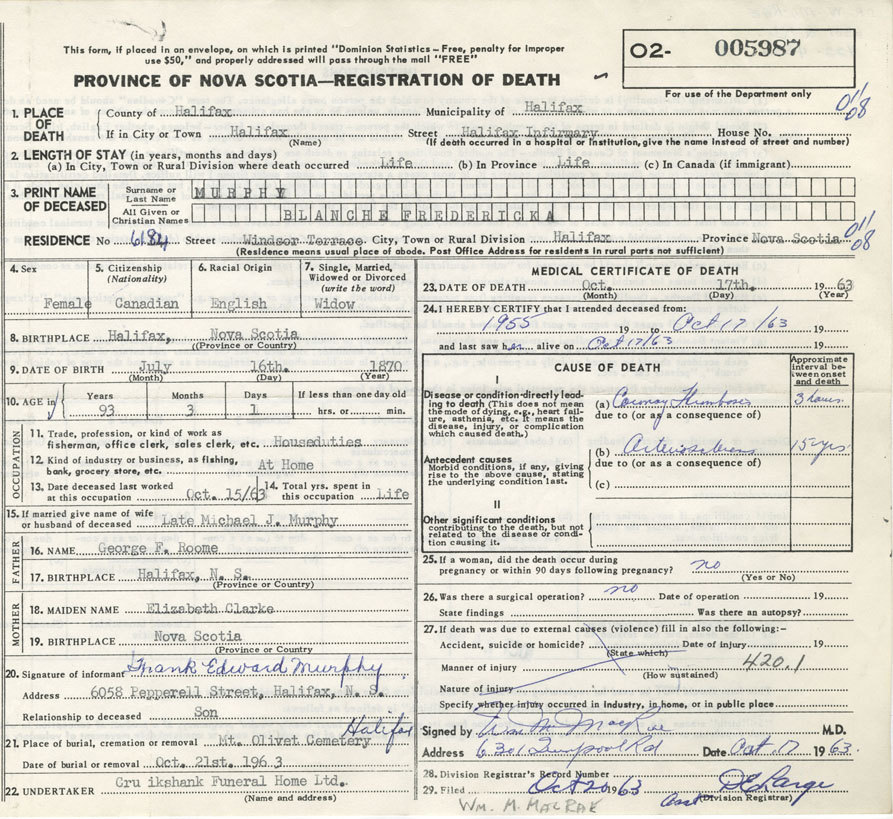 This form, if placed in an envelope, on which is printed "Dominion Statistics – Free, penalty for improper
use $50," and properly addressed will pass through the mail "FREE"
O2- 005987
PROVINCE OF NOVA SCOTIA—REGISTRATION OF DEATH
For use of the Department only
1. PLACE OF DEATH County of Halifax Municipality of Halifax
011/08
If in City or Town Halifax Street Halifax Infirmary House No.
(Name) (If death occurred in a hospital or institution, give the name instead of street and number)
2. LENGTH OF STAY (in years, months and days)
(a) In City, Town or Rural Division where death occurred Life (b) In Province Life (c) In Canada (if immigrant)
3. PRINT NAME OF DECEASED Surname or Last Name MURPHY
All Given or Christian Names BLANCHE FREDERICKA
011/08
RESIDENCE No Street Windsor Terrace City, Town or Rural Division Halifax Province Nova Scotia
(Residence means usual place of abode. Post Office Address for residents in rural parts not sufficient)
4. Sex Female
5. Citizenship (Nationality) Canadian
6. Racial Origin English
7. Single, Married, Widowed or Divorced (write the word) Widow
8. BIRTHPLACE Halifax, Nova Scotia
(Province or Country)
9. DATE OF BIRTH July 16th. 1870
(Month) (Day) (Year)
10. AGE in Years Months Days If less than one day old
93 3 1 hrs. or min.
OCCUPATION
11. Trade, profession, or kind of work as
fisherman, office clerk, sales clerk, etc. Houseduties
12. Kind of industry or business, as fishing,
bank, grocery store, etc. At Home
13. Date deceased last worked at this occupation Oct. 15/63
14. Total yrs. spent in this occupation Life
15. If married give name of wife
or husband of deceased Late Michael J. Murphy
FATHER
16. NAME George F. Roome
17. BIRTHPLACE Halifax, N. S.
(Province or Country)
MOTHER
18. MAIDEN NAME Elizabeth Clarke
19. BIRTHPLACE Nova Scotia
(Province or Country)
20. Signature of informant Frank Edward Murphy
Address 6058 Pepperell Street, Halifax, N. S.
Relationship to deceased Son
Halifax
21. Place of burial, cremation or removal Mt. Olivet Cemetery
Date of burial or removal Oct. 21st. 1963
22. UNDERTAKER Cruikshank Funeral Home Ltd.
(Name and address)
MEDICAL CERTIFICATE OF DEATH
23. DATE OF DEATH Oct. 17th. 19 63
(Month) (Day) (Year)
24. I HEREBY CERTIFY that I attended deceased from:
1955 19 to Oct 17/63 19
and last saw her alive on Oct 17/63 19
CAUSE OF DEATH
Approximate interval between onset and death
I
Disease or condition directly leading to death (This does not mean
the mode of dying, e.g., heart failure, asthenia, etc. It means the
disease, injury, or complication
which caused death.)
(a) Coronary Thrombosis 3 hours
due to (or as a consequence of)
Antecedent causes
Morbid conditions, if any, giving
rise to the above cause, stating
the underlying condition last.
(b) Arteriosclerosis 15 yrs
due to (or as a consequence of)
(c)
II
Other significant conditions
contributing to the death, but not
related to the disease or condition causing it.
25. If a woman, did the death occur during
pregnancy or within 90 days following pregnancy? no
(Yes or No)
26. Was there a surgical operation? no Date of operation 19
State findings Was there an autopsy?
27. If death was due to external causes (violence) fill in also the following:–
Accident, suicide or homicide? Date of injury 19
(State which)
Manner of injury 420.1
(How sustained)
Nature of injury
Specify whether injury occurred in industry, in home, or in public place
Signed by Wm M MacRae M.D.
Address 6301 Quinpool Rd Date Oct 17 1963
28. Division Registrar's Record Number
29. Filed Oct 20 1963
Asst (Division Registrar)
WM. M. MACRAE